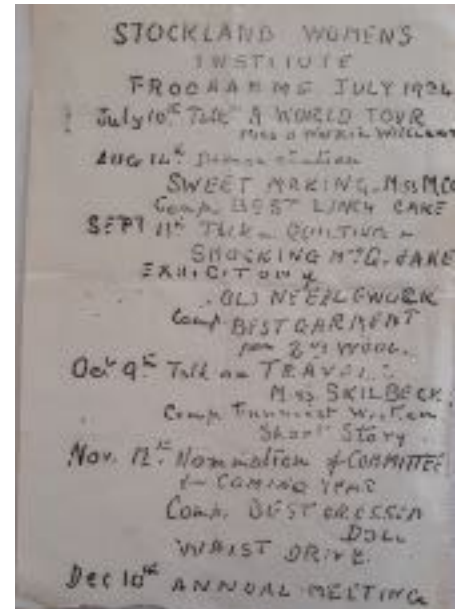 STOCKLAND WOMENS
INSTITUTE
PROGRAMME JULY 1924
July 10th Talk A WORLD TOUR
Miss
AUG 14th Demonstration
SWEET MAKING. Miss
Comp. BEST LUNCH CAKE
SEPT 11th Talk on QUILTING &
SMOCKING
EXHIBIT
OLD NEEDLEWORK
Comp. BEST GARMENT
WOOL.
Oct 9th Talk on TRAVEL
Miss SKILBECK
Comp. Funniest Written
Short Story
Nov. 12th Nomination of COMMITTEE
for COMING YEAR
Comp. BEST DRESSED
DOLL
WHIST DRIVE
Dec 10th ANNUAL MEETING